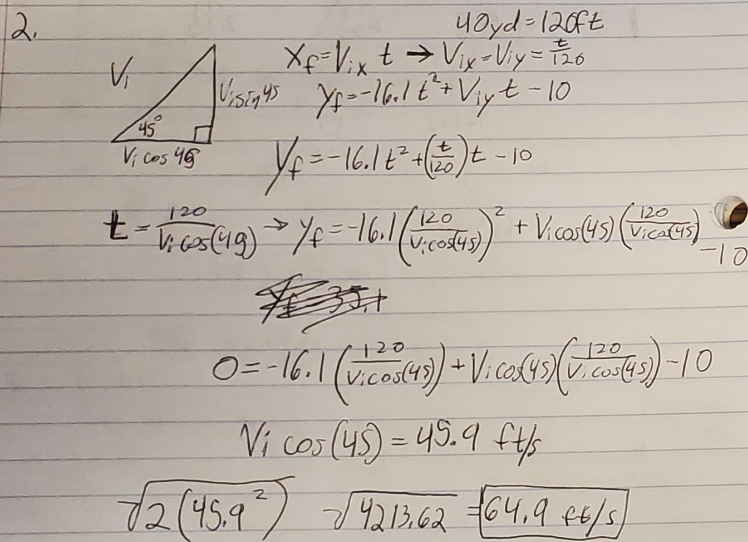 2.
40yd=120ft
Xf=Vix t → Vix=Viy=t/120
Vi
Visin45
yf=-16.1t²+Viyt-10
45°
Vicos45
yf=-16.1t²+(t/120)t-10
t=120/Vicos(45) → yf=-16.1(120/Vicos(45))²+Vicos(45)(120/Vicos(45))
-10
0=-16.1(120/Vicos(45))+Vicos(45)(120/Vicos(45))-10
Vicos(45)=45.9 ft/s
√2(45.9²) √4213.62 =64.9 ft/s